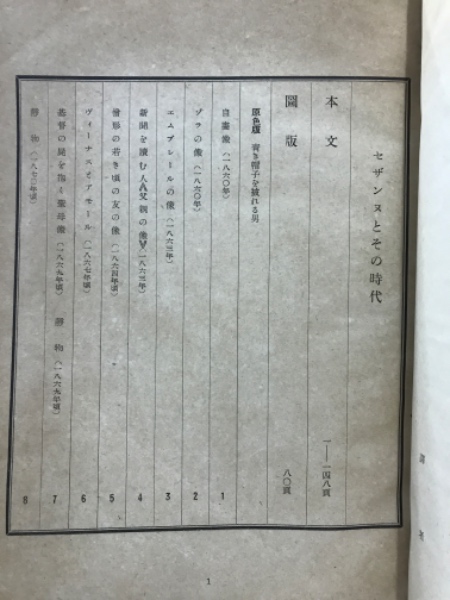 セザンヌとその時代
本文 一——一四八頁
圖版 八〇頁
原色版 青き帽子を被れる男
自畫像(一八六〇年) 1
ゾラの像(一八六〇年) 2
エムプレールの像(一八六三年) 3
新聞を讀む人〈父親の像〉(一八六三年) 4
僧形の若き頃の友の像(一八六四年頃) 5
ヴィーナスとアモール(一八六七年頃) 6
基督の屍を抱く聖母像(一八六九年頃) 靜物(一八六九年頃) 7
靜物(一八七〇年頃) 8
1